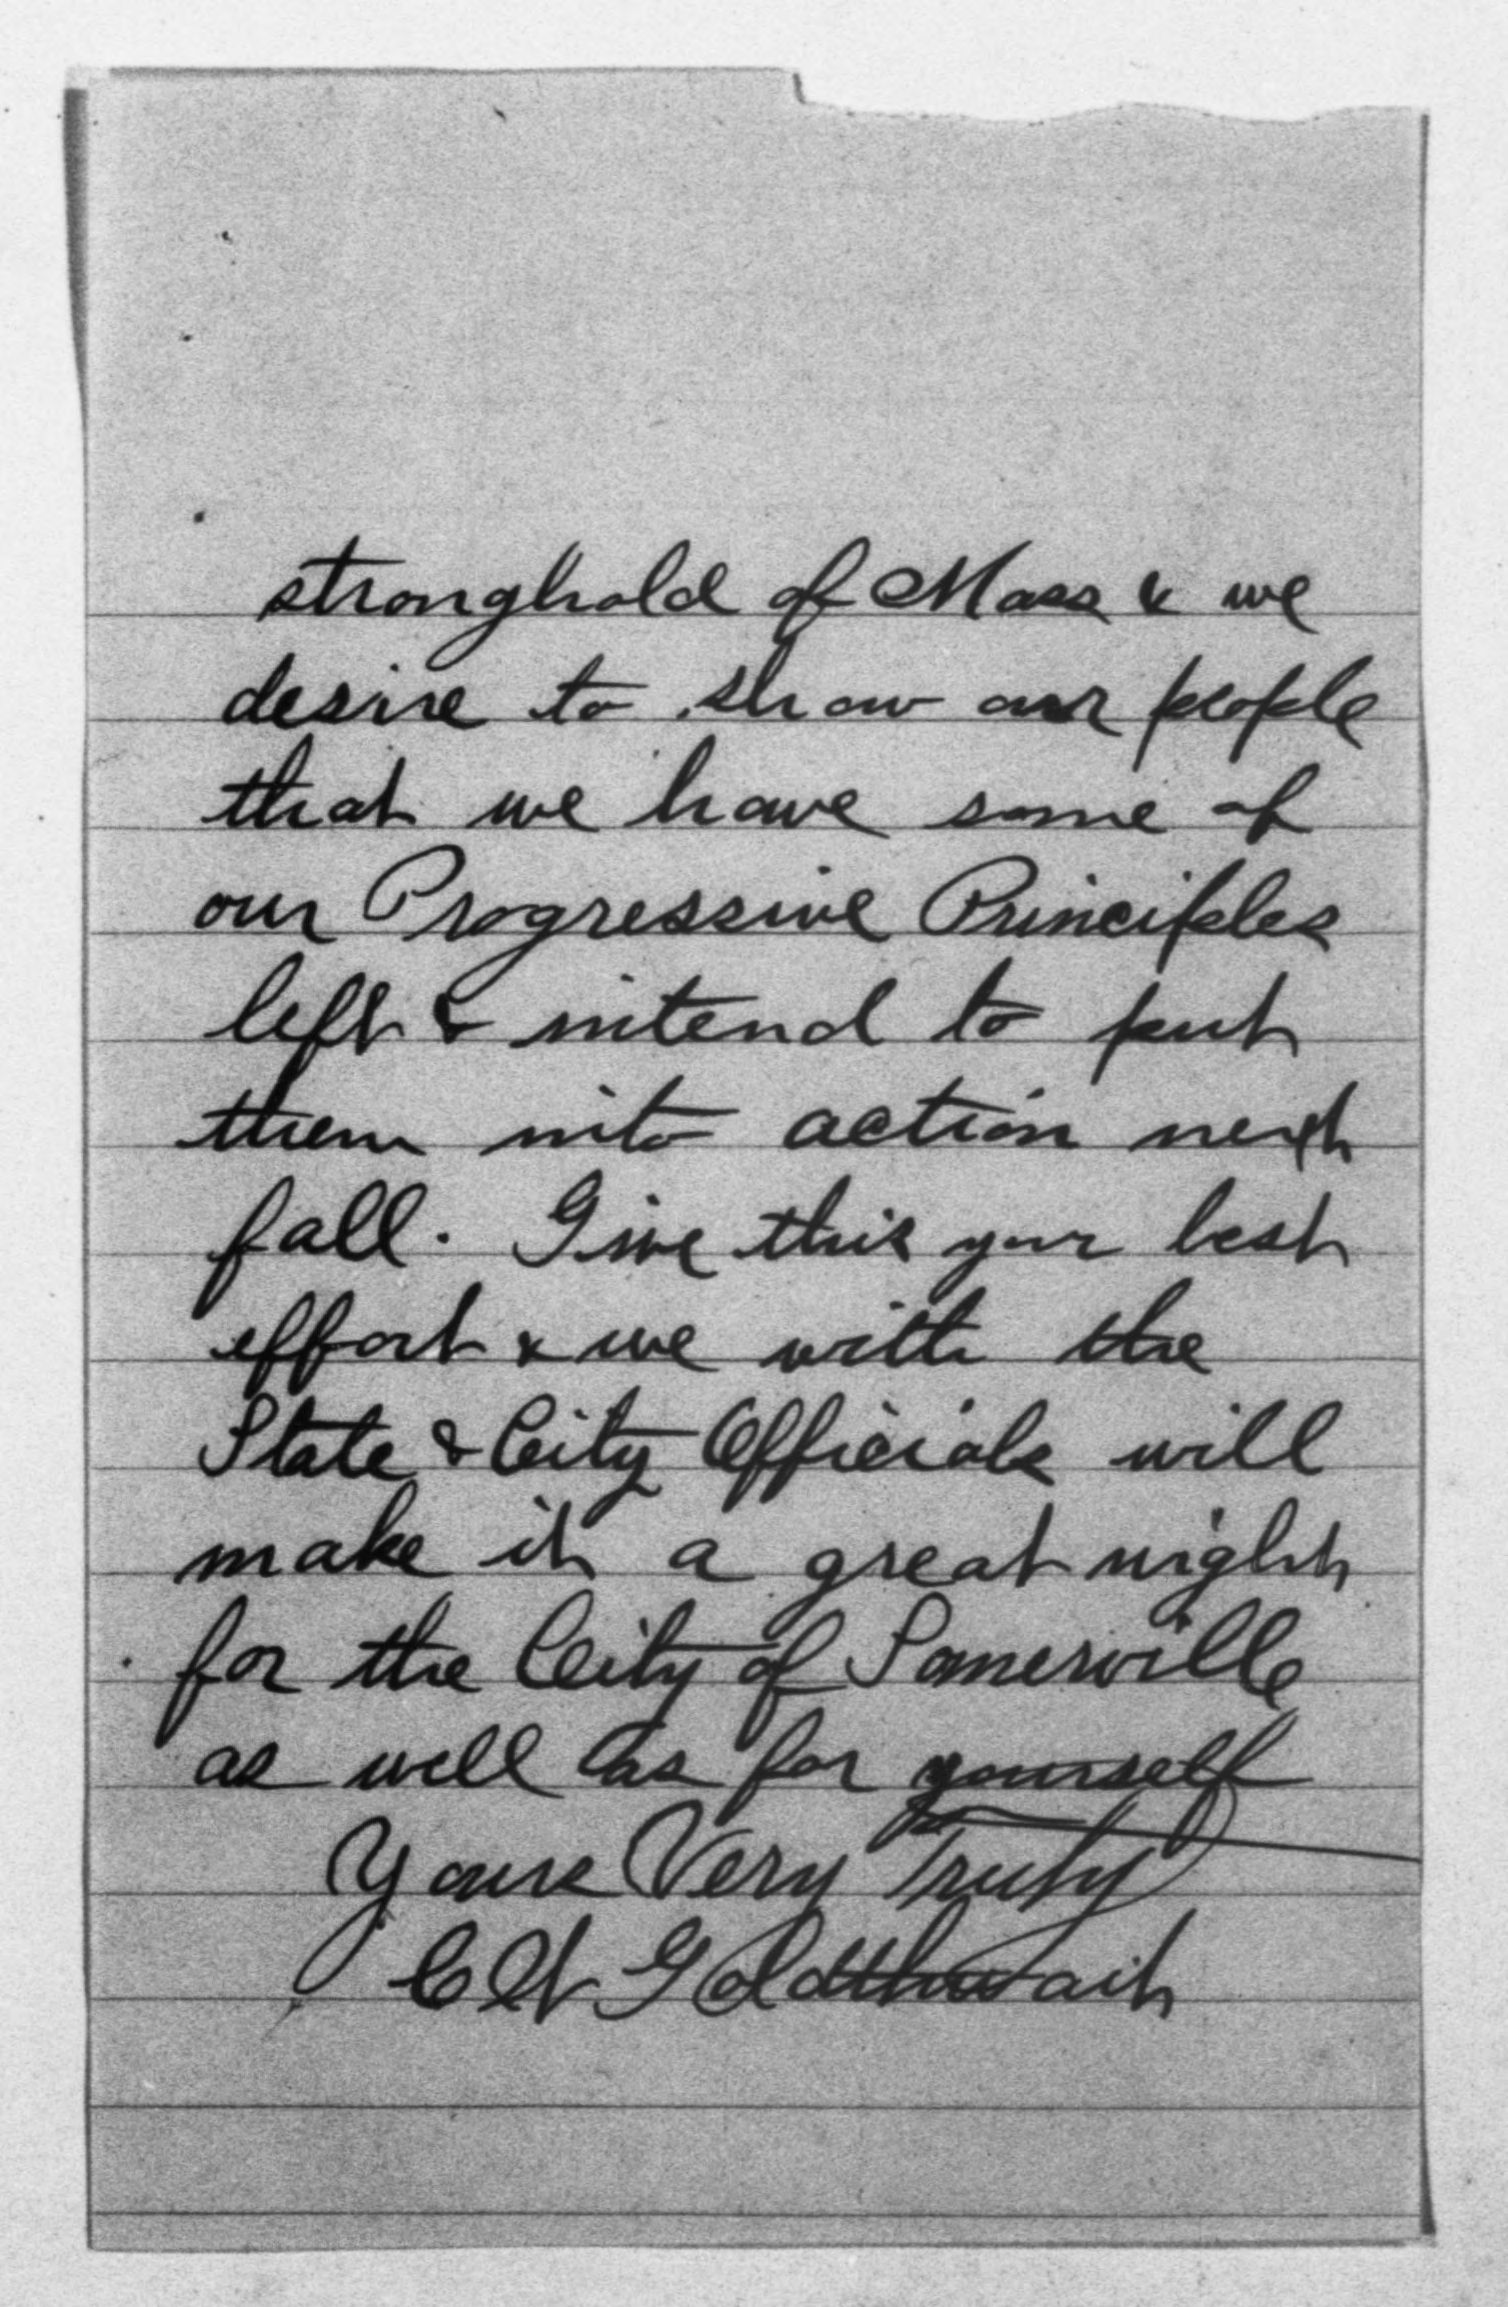 stronghold of Mass & we
desire to show our people
that we have some of
our Progressive Principles
left & intend to put
them into action next
fall. Give this your best
effort & we with the
State & City Officials will
make it a great night
for the City of Somerville
as well as for yourself
Yours Very Truly
Goldthwait